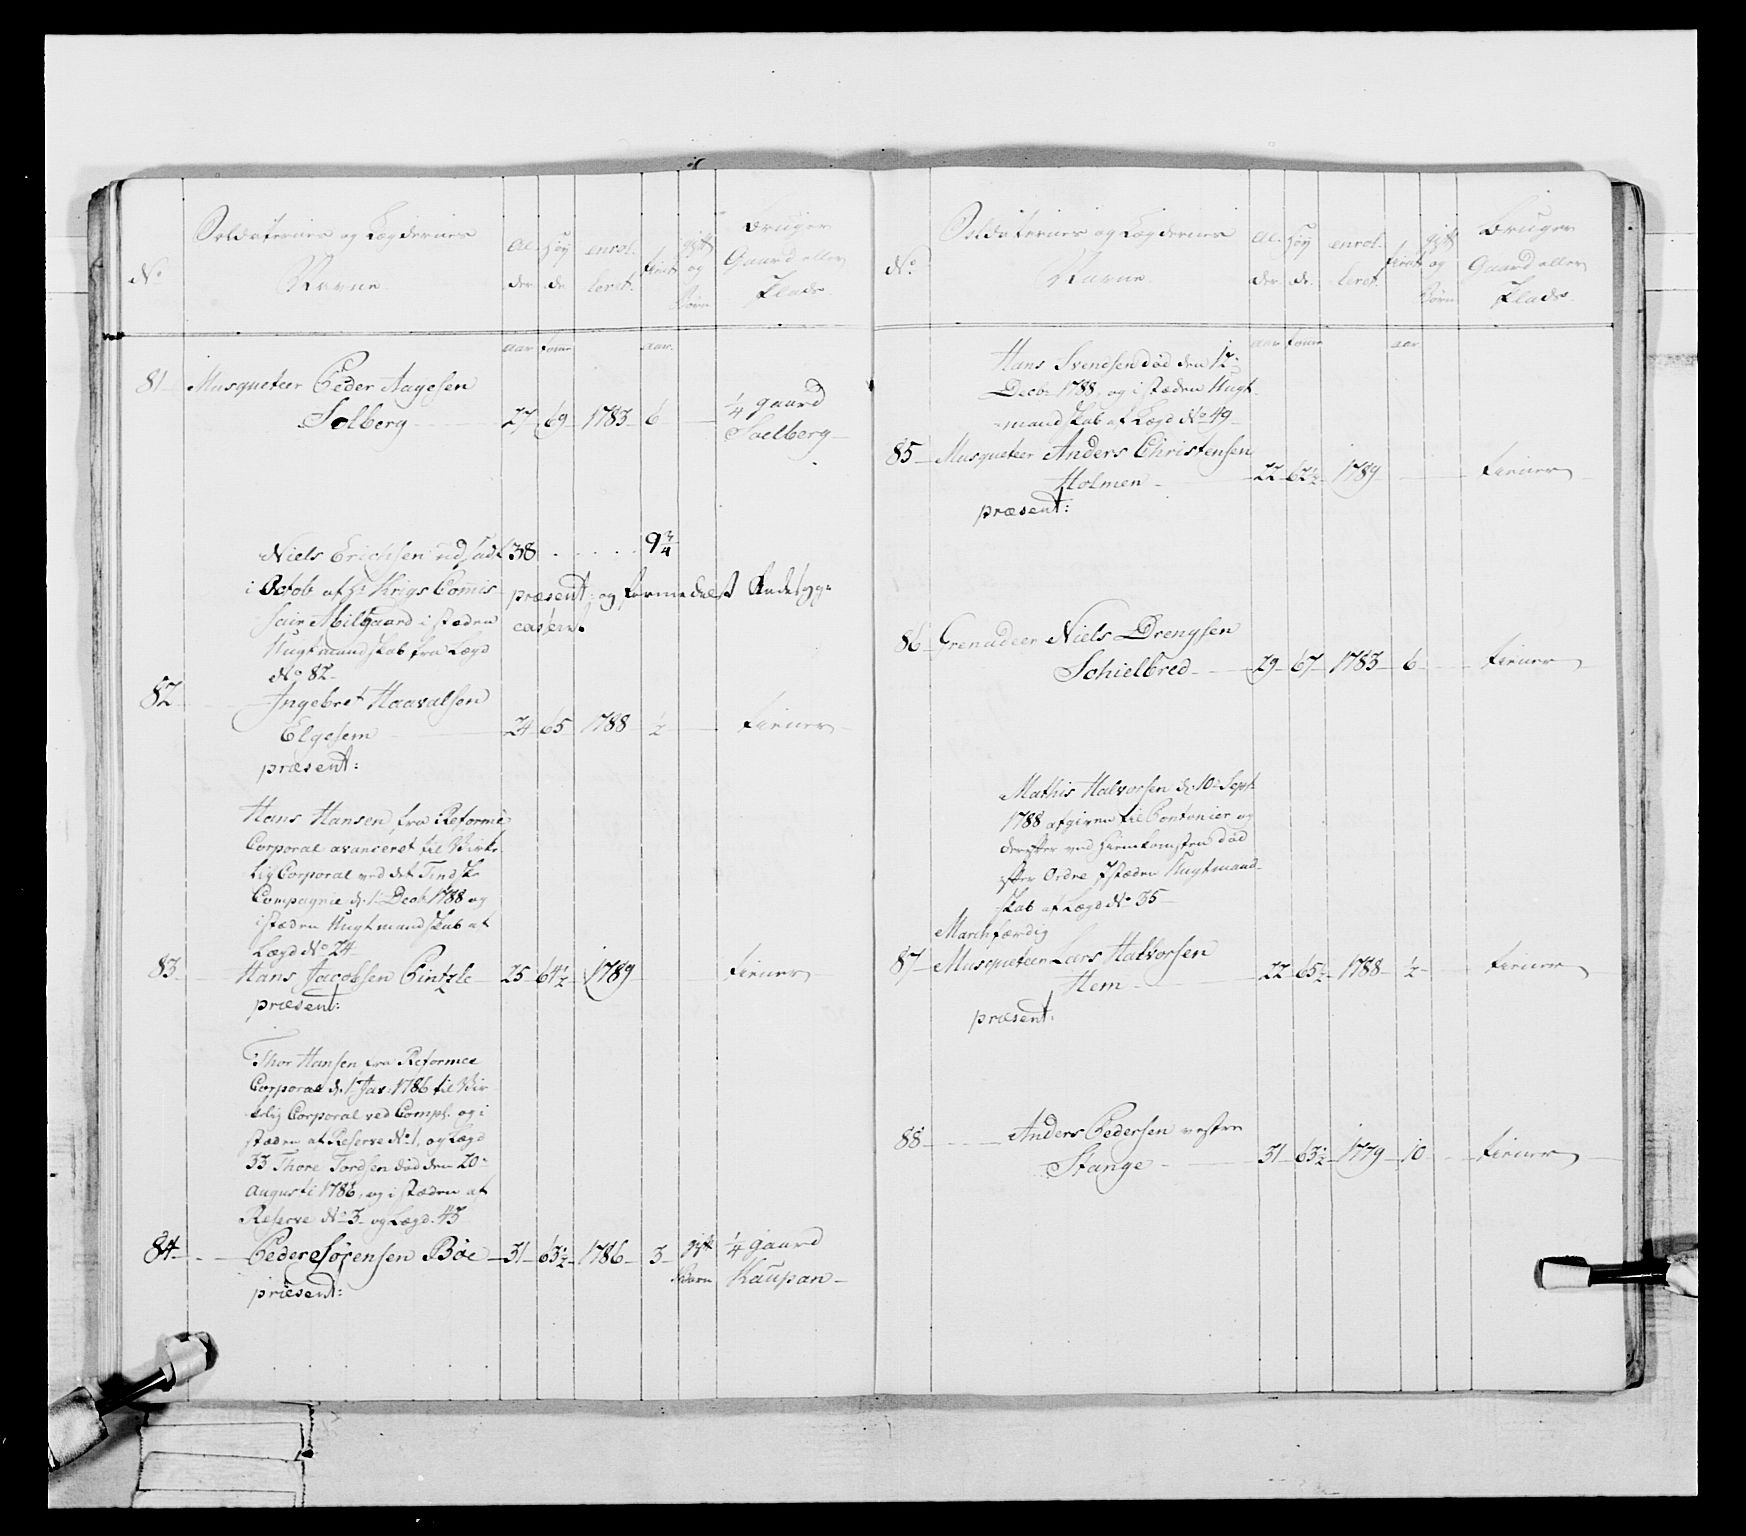 No
Soldaternes og Lægdernes
Navne
Al-
der
Høy
de
enrol-
leret
tient
gift
og
Børn
Bruger
Gaard eller
Plads
aar tomr aar
81 Musqueteer Peder Aagesen
Solberg 27 69 1783 6
1/4 gaard
Soelberg
Niels Erichsen udsadt 38 9 3/4
i Octob af Hr Krigs Comis- præsent: og formedelst
sair Milgaard i stæden
Nugt mandskab fra Lægd
No 82
82 Ingebret Haavalsen
Elgesem 24 65 1788 1/2 tiener
præsent:
Hans Hansen fra Reforme
Corporal avanceret til Virke
lig Corporal ved det Tindske
Compagnie d. 1 Decbr 1788 og
i stæden Nugt mandskab af
Lægd No 24
83 Hans Jacobsen Pintzle 25 64 1/2 1789 tiener
præsent:
Thor Hansen fra Reformee
Corporal d. 1 Jan: 1786 til Vir-
kelig Corporal ved Comp. og i
stæden af Reserve No 1, og Lægd
33 Thore Tordsen død den 20
Augusti 1786, og i stæden af
Reserve No 3 og Lægd 43
84 Peder Sørensen Bøe 31 63 1/2 1786 3 gift 1/4 gaard
Kaupan
præsent:
No
Soldaternes og Lægdernes
Navne
Al-
der
Høy
de
enrol-
leret
tient
gift
og
Børn
Bruger
Gaard eller
Plads
aar tomr aar
Hans Svendsen død den 12
Decbr 1788, og i stæden Nugt
mandskab af Lægd No 49
85 Musqueteer Anders Christensen
Holmen 22 62 1/2 1789 tiener
præsent:
86 Grenadeer Niels Drengsen
Schielbred 29 67 1783 6 tiener
Mathis Halvorsen d. 10 Sept.
1788 afgiven til Pontonier og
derefter ved Hiemkomsten død
efter Ordre I stæden Nugt mand-
skab af Lægd No 35
Marchfærdig
87 Musqueteer Lars Halvorsen
Hem 22 65 1/2 1788 1/2 tiener
præsent:
88 Anders Pedersen vestre
Stange 31 63 1/2 1779 10 tiener